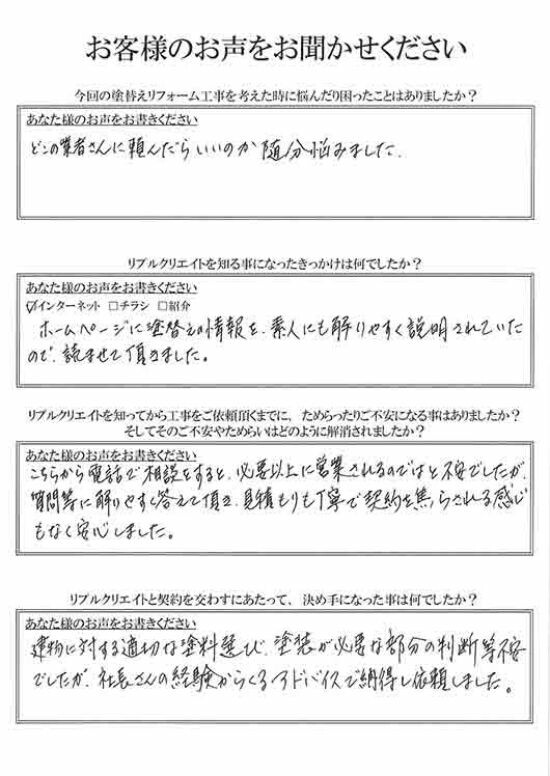 お客様のお声をお聞かせください
今回の塗替えリフォーム工事を考えた時に悩んだり困ったことはありましたか？
あなた様のお声をお書きください
どこの業者さんに頼んだらいいのか随分悩みました.
リプルクリエイトを知る事になったきっかけは何でしたか？
あなた様のお声をお書きください
☑インターネット □チラシ □紹介
ホームページに塗替えの情報を、素人にも解りやすく説明されていた
ので、読ませて頂きました。
リプルクリエイトを知ってから工事をご依頼頂くまでに、ためらったりご不安になる事はありましたか？
そしてそのご不安やためらいはどのように解消されましたか？
あなた様のお声をお書きください
こちらから電話で相談をすると、必要以上に営業されるのではと不安でしたが、
質問等に解りやすく答えて頂き、見積もりも丁寧で契約を焦らされる感じ
もなく安心しました。
リプルクリエイトと契約を交わすにあたって、決め手になった事は何でしたか？
あなた様のお声をお書きください
建物に対する適切な塗料選び、塗装が必要な部分の判断等不安
でしたが、社長さんの経験からくるアドバイスで納得し依頼しました。